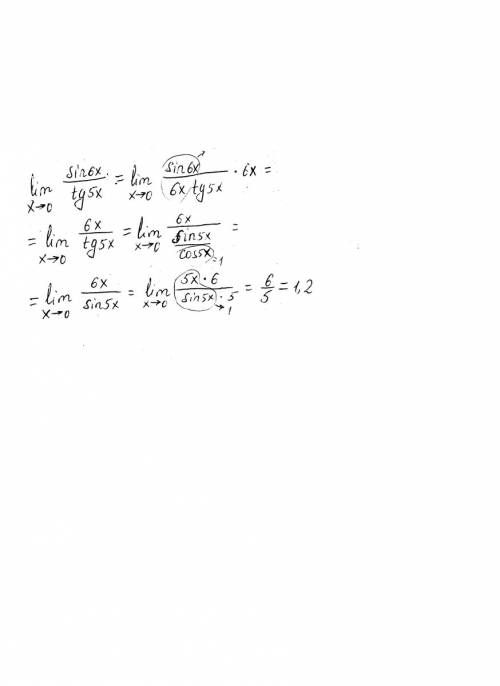 lim x→0 sin6x / tg5x = lim x→0 sin6x / 6x tg5x · 6x =
= lim x→0 6x / tg5x = lim x→0 6x / (sin5x / cos5x →1) =
= lim x→0 6x / sin5x = lim x→0 5x · 6 / sin5x · 5 →1 = 6/5 = 1,2